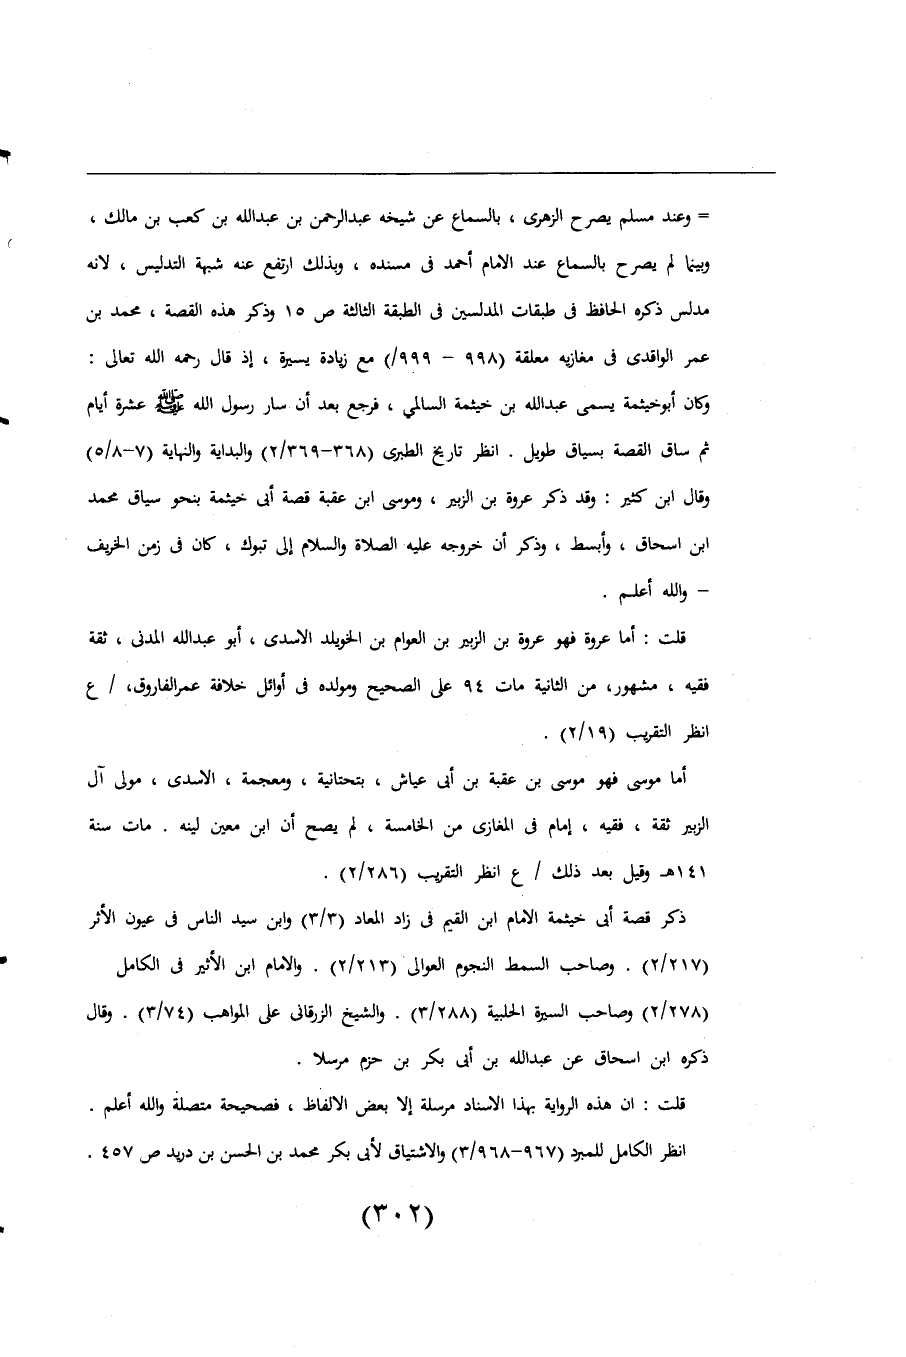 = وعند مسلم يصرح الزهرى ، بالسماع عن شيخه عبدالرحمن بن عبدالله بن كعب بن مالك ،
وبينما لم يصرح بالسماع عند الامام أحمد فى مسنده ، وبذلك ارتفع عنه شبهة التدليس ، لانه
مدلس ذكره الحافظ فى طبقات المدلسين فى الطبقة الثالثة ص ١٥ وذكر هذه القصة ، محمد بن
عمر الواقدى فى مغازيه معلقة (٩٩٨ – ٩٩٩/) مع زيادة يسيرة ، إذ قال رحمه الله تعالى :
وكان أبوخيثمة يسمى عبدالله بن خيثمة السالمي ، فرجع بعد أن سار رسول الله ﷺ عشرة أيام
ثم ساق القصة بسياق طويل . انظر تاريخ الطبرى (٣٦٨–٢/٣٦٩) والبداية والنهاية (٧–٥/٨)
وقال ابن كثير : وقد ذكر عروة بن الزبير ، وموسى ابن عقبة قصة أبى خيثمة بنحو سياق محمد
ابن اسحاق ، وأبسط ، وذكر أن خروجه عليه الصلاة والسلام إلى تبوك ، كان فى زمن الخريف
– والله أعلم .
قلت : أما عروة فهو عروة بن الزبير بن العوام بن الخويلد الاسدى ، أبو عبدالله المدنى ، ثقة
فقيه ، مشهور، من الثانية مات ٩٤ على الصحيح ومولده فى أوائل خلافة عمرالفاروق، / ع
انظر التقريب (٢/١٩) .
أما موسى فهو موسى بن عقبة بن أبى عياش ، بتحتانية ، ومعجمة ، الاسدى ، مولى آل
الزبير ثقة ، فقيه ، إمام فى المغازى من الخامسة ، لم يصح أن ابن معين لينه . مات سنة
١٤١هـ وقيل بعد ذلك / ع انظر التقريب (٢/٢٨٦) .
ذكر قصة أبى خيثمة الامام ابن القيم فى زاد المعاد (٣/٣) وابن سيد الناس فى عيون الأثر
(٢/٢١٧) . وصاحب السمط النجوم العوالى (٢/٢١٣) . والامام ابن الأثير فى الكامل
(٢/٢٧٨) وصاحب السيرة الحلبية (٣/٢٨٨) . والشيخ الزرقانى على المواهب (٣/٧٤) . وقال
ذكره ابن اسحاق عن عبدالله بن أبى بكر بن حزم مرسلا .
قلت : ان هذه الرواية بهذا الاسناد مرسلة إلا بعض الالفاظ ، فصحيحة متصلة والله أعلم .
انظر الكامل للمبرد (٩٦٧–٣/٩٦٨) والاشتياق لأبى بكر محمد بن الحسن بن دريد ص ٤٥٧ .
(٣٠٢)